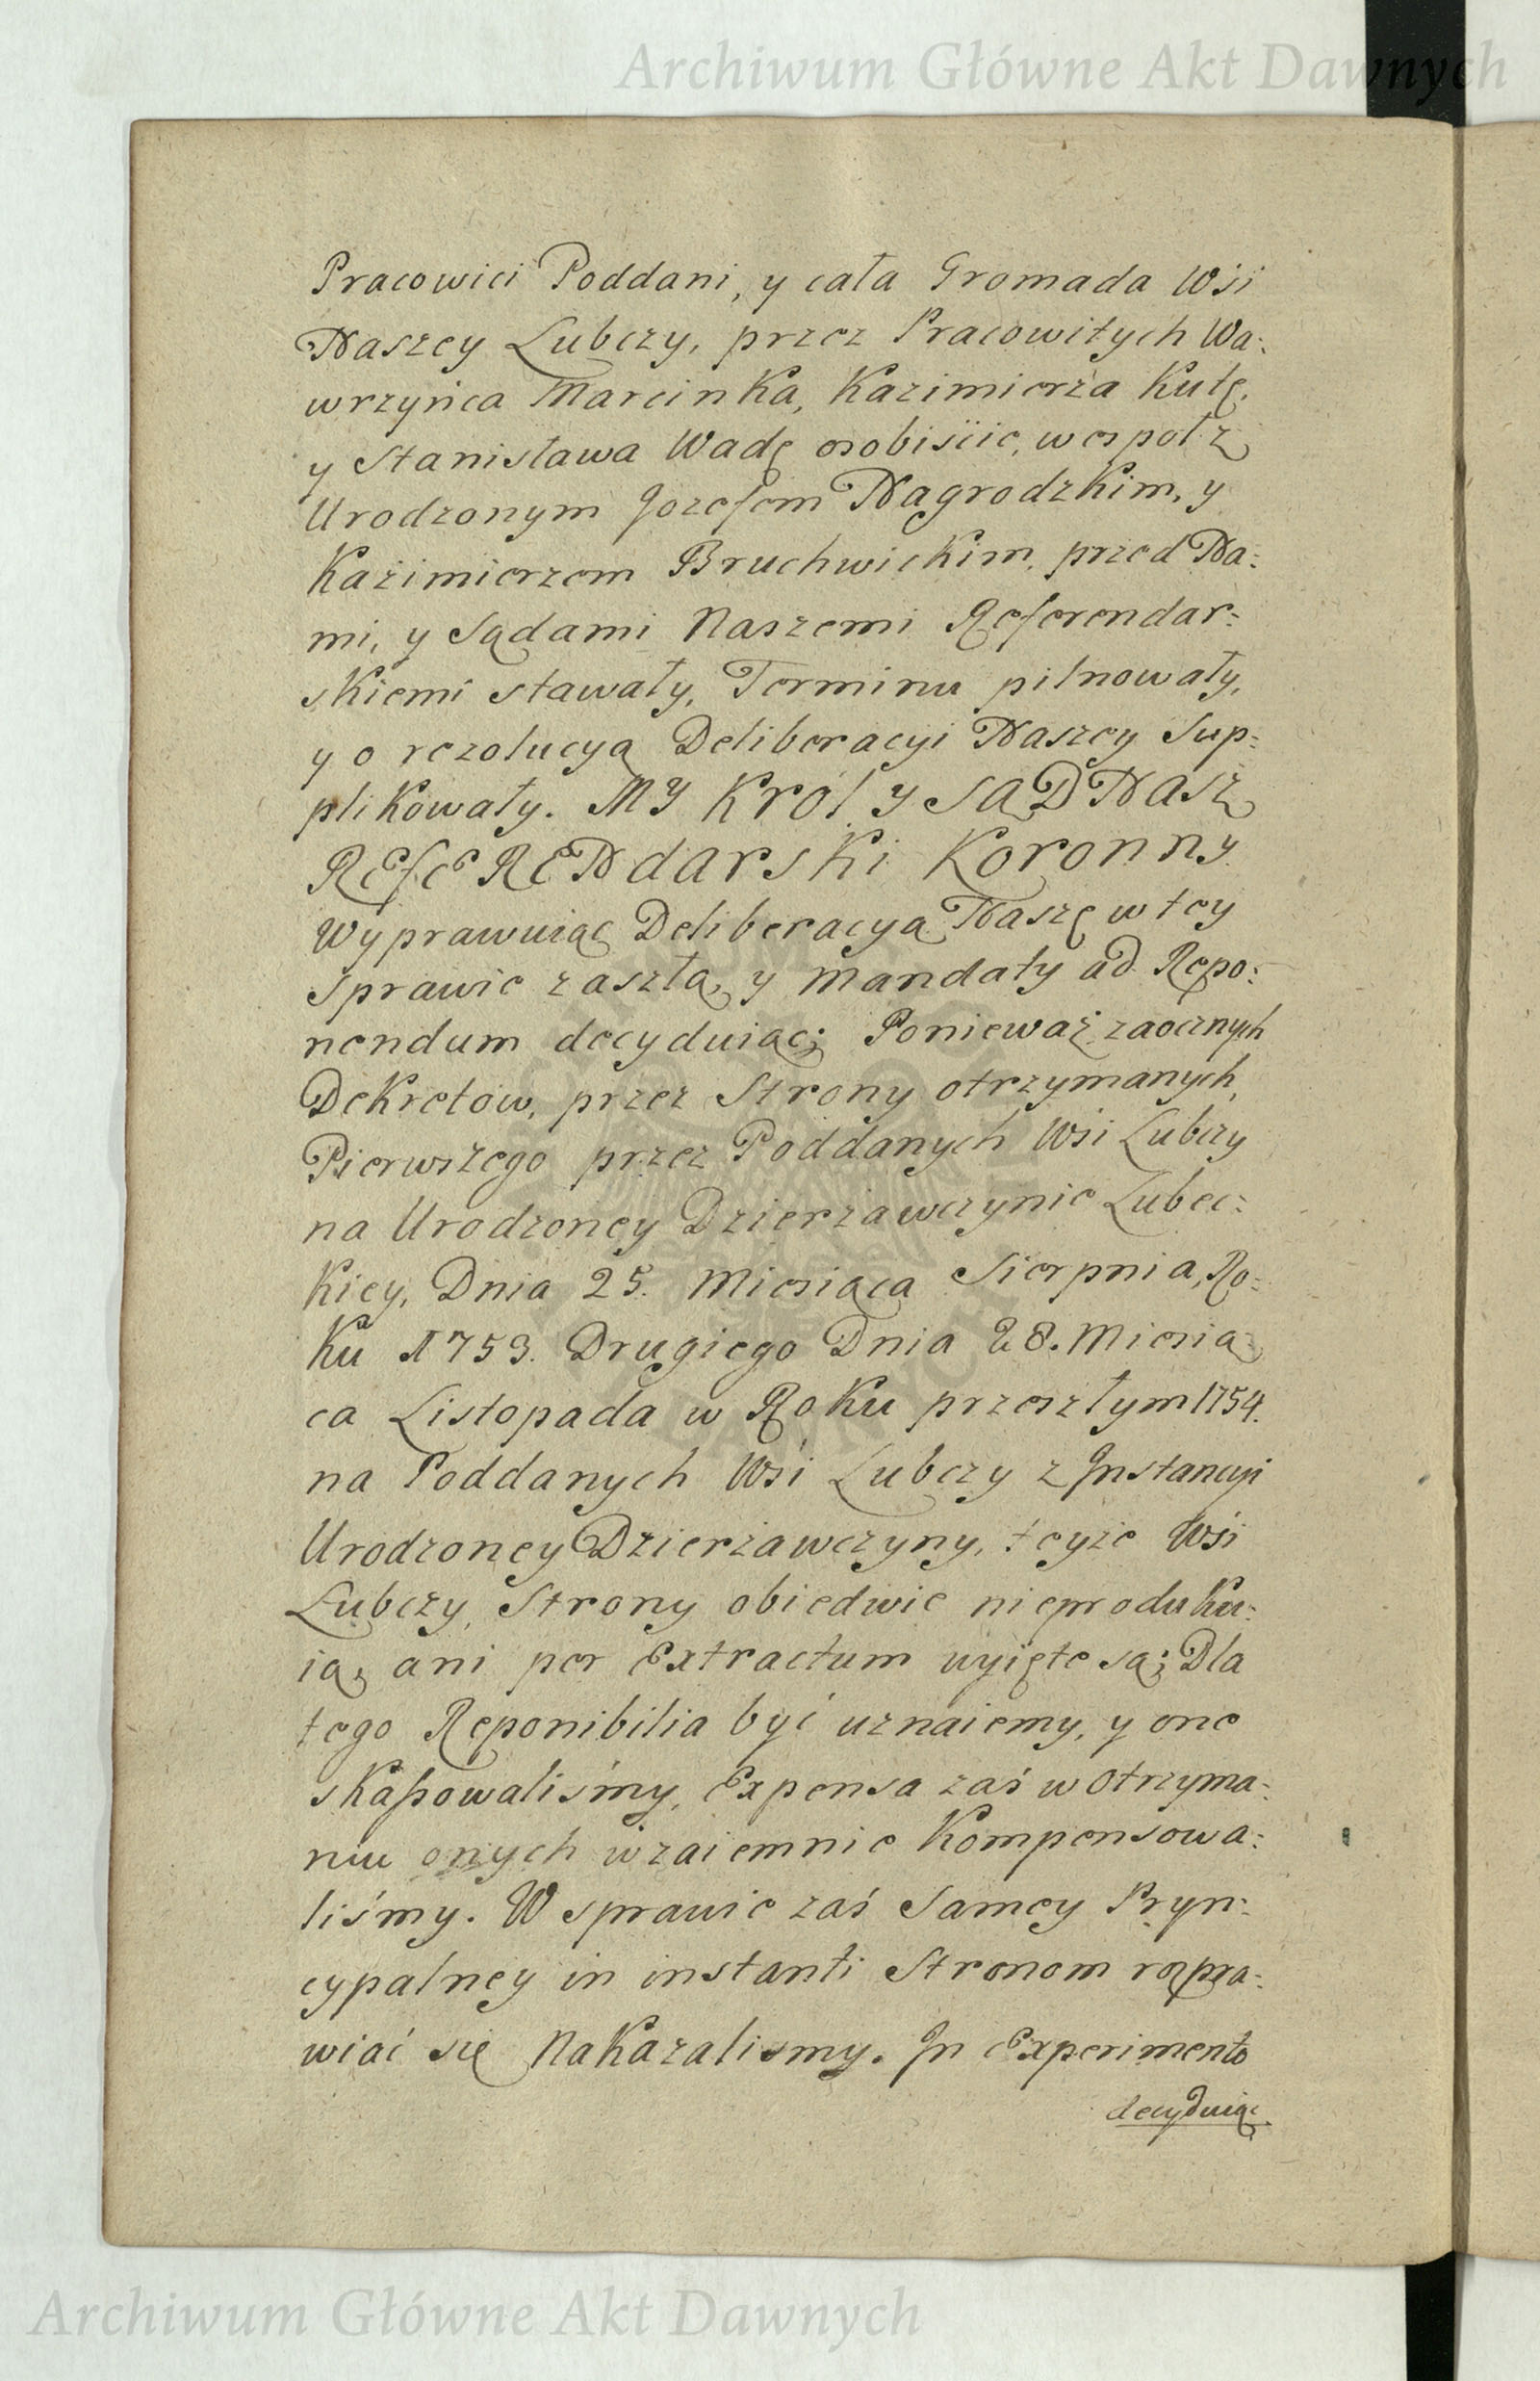 Archiwum Główne Akt Dawnych
Pracowici Poddani, y cała Gromada Wśi
Naszey Lubczy, przez Pracowitych Wa:
wrzyńca Marcinka, Kazimierza Kutę,
y Stanisława Wadę osobiście, wespoł z
Urodzonym Jozefem Nagrodzkim, y
Kaźimierzem Bruchwickim, przed Na:
mi, y Sądami Naszemi Referendar:
skiemi stawały, Terminu pilnowały,
y o rezolucyą Deliberacyi Naszey Sup:
plikowały. MY KRól y SĄD NASZ
REfERENdarski Koronny.
Wyprawuiąc Deliberacyą Naszę w tey
sprawie zaszłą, y mandaty ad Repo:
nendum decyduiąc; Ponieważ zaocznych
Dekretow, przez Strony otrzymanych,
Pierwszego przez Poddanych Wśi Lubczy
na Urodzoney Dzierżawczynie Lubec:
kiey, Dnia 25. Miesiąca Sierpnia, Ro:
ku 1753. Drugiego Dnia 28. Miesią
ca Listopada w Roku przeszłym 1754.
na Poddanych Wśi Lubczy z Jnstancyi
Urodzoney Dzierżawczyny, teyże Wśi
Lubczy, Strony obiedwie nieproduku:
ią, ani per Extractum wyięte są; Dla
tego Reponibilia być uznaiemy, y one
skaßowaliśmy, Expensa zaś w otrzyma:
niu onych wzaiemnie kompensowa:
liśmy. W sprawie zaś Samey Pryn:
cypalney in instanti Stronom rozpra:
wiać się Nakazalismy. Jn Experimento
decyduiąc
Archiwum Główne Akt Dawnych